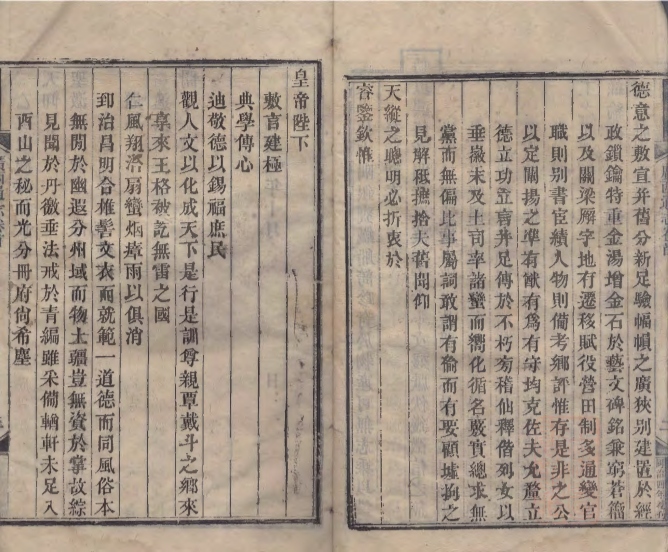 德意之敷宣并舊分新足驗幅幀之廣狹别建置於經
政鎖鑰特重金湯增金石於藝文碑銘兼窮蒼籀
以及關梁廨宇地有遷移賦役營田制多通變官
職則别書宦績人物則備考鄉評惟存是非之公
以定闡揚之準有猷有爲有守均克佐夫允釐立
德立功立言并足傳於不朽旁稽仙釋偕列女以
垂嶽末及土司率諸蠻而嚮化循名覈實總求無
黨而無偏比事屬詞敢謂有倫而有要顧墟拘之
見解秪摭拾夫舊聞仰
天縱之聰明必折衷於
睿鑒欽惟
皇帝陛下
敷言建極
典學傳心
迪敬德以錫福庶民
觀人文以化成天下是行是訓尊親覃戴斗之鄉來
享來王格被訖無雷之國
仁風翔洽扇蠻烟瘴雨以俱消
郅治昌明合椎髻文衣而就範一道德而同風俗本
無閒於幽遐分州域而物土疆豈無資於掌故綜
見聞於丹徼垂法戒於青編雖采備輶軒未足入
西山之秘而光分冊府尙希塵